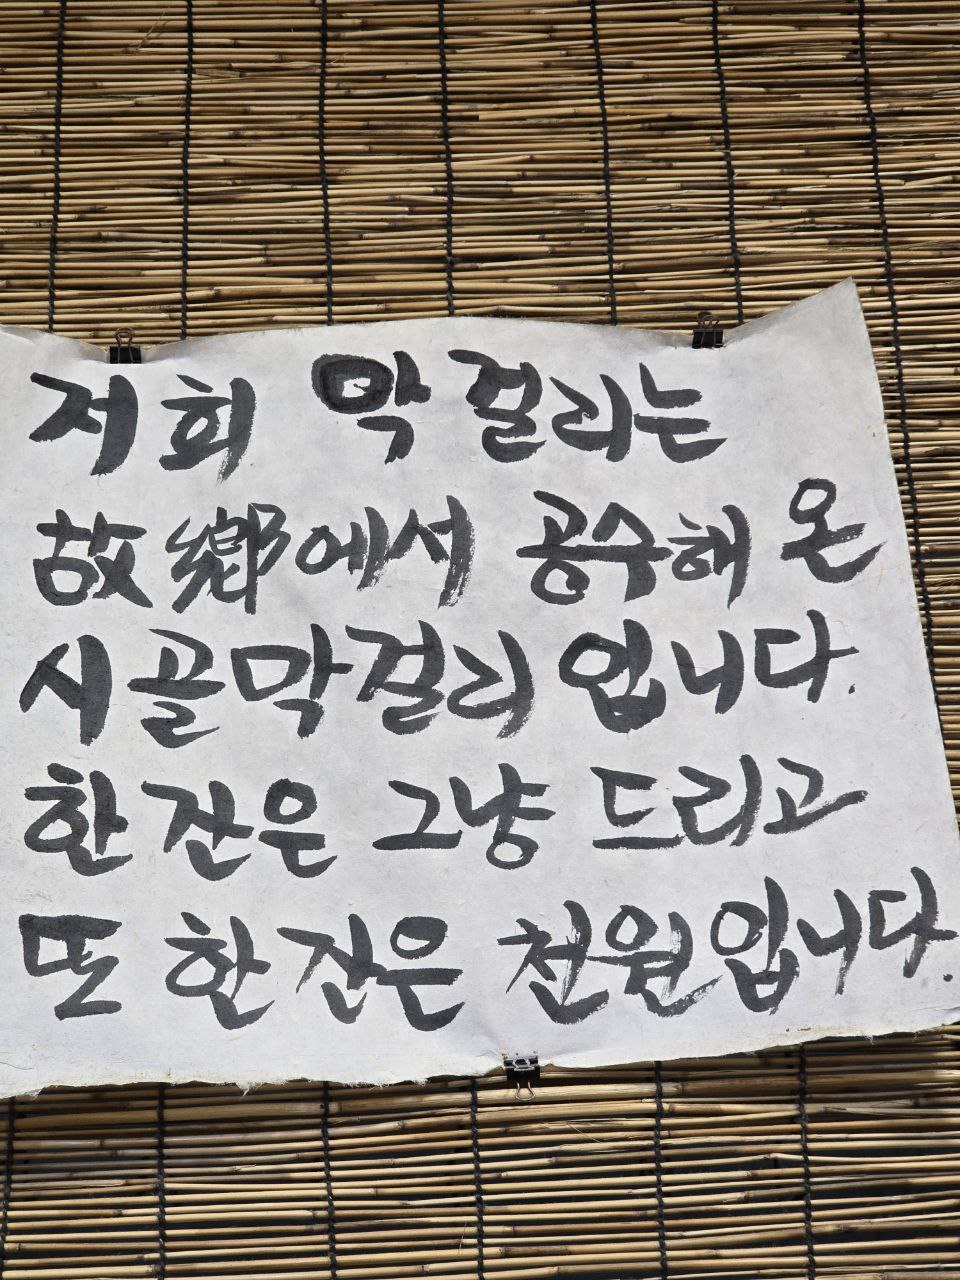 저희 막걸리는
故鄕에서 공수해 온
시골막걸리 입니다.
한잔은 그냥 드리고
또 한잔은 천원입니다.